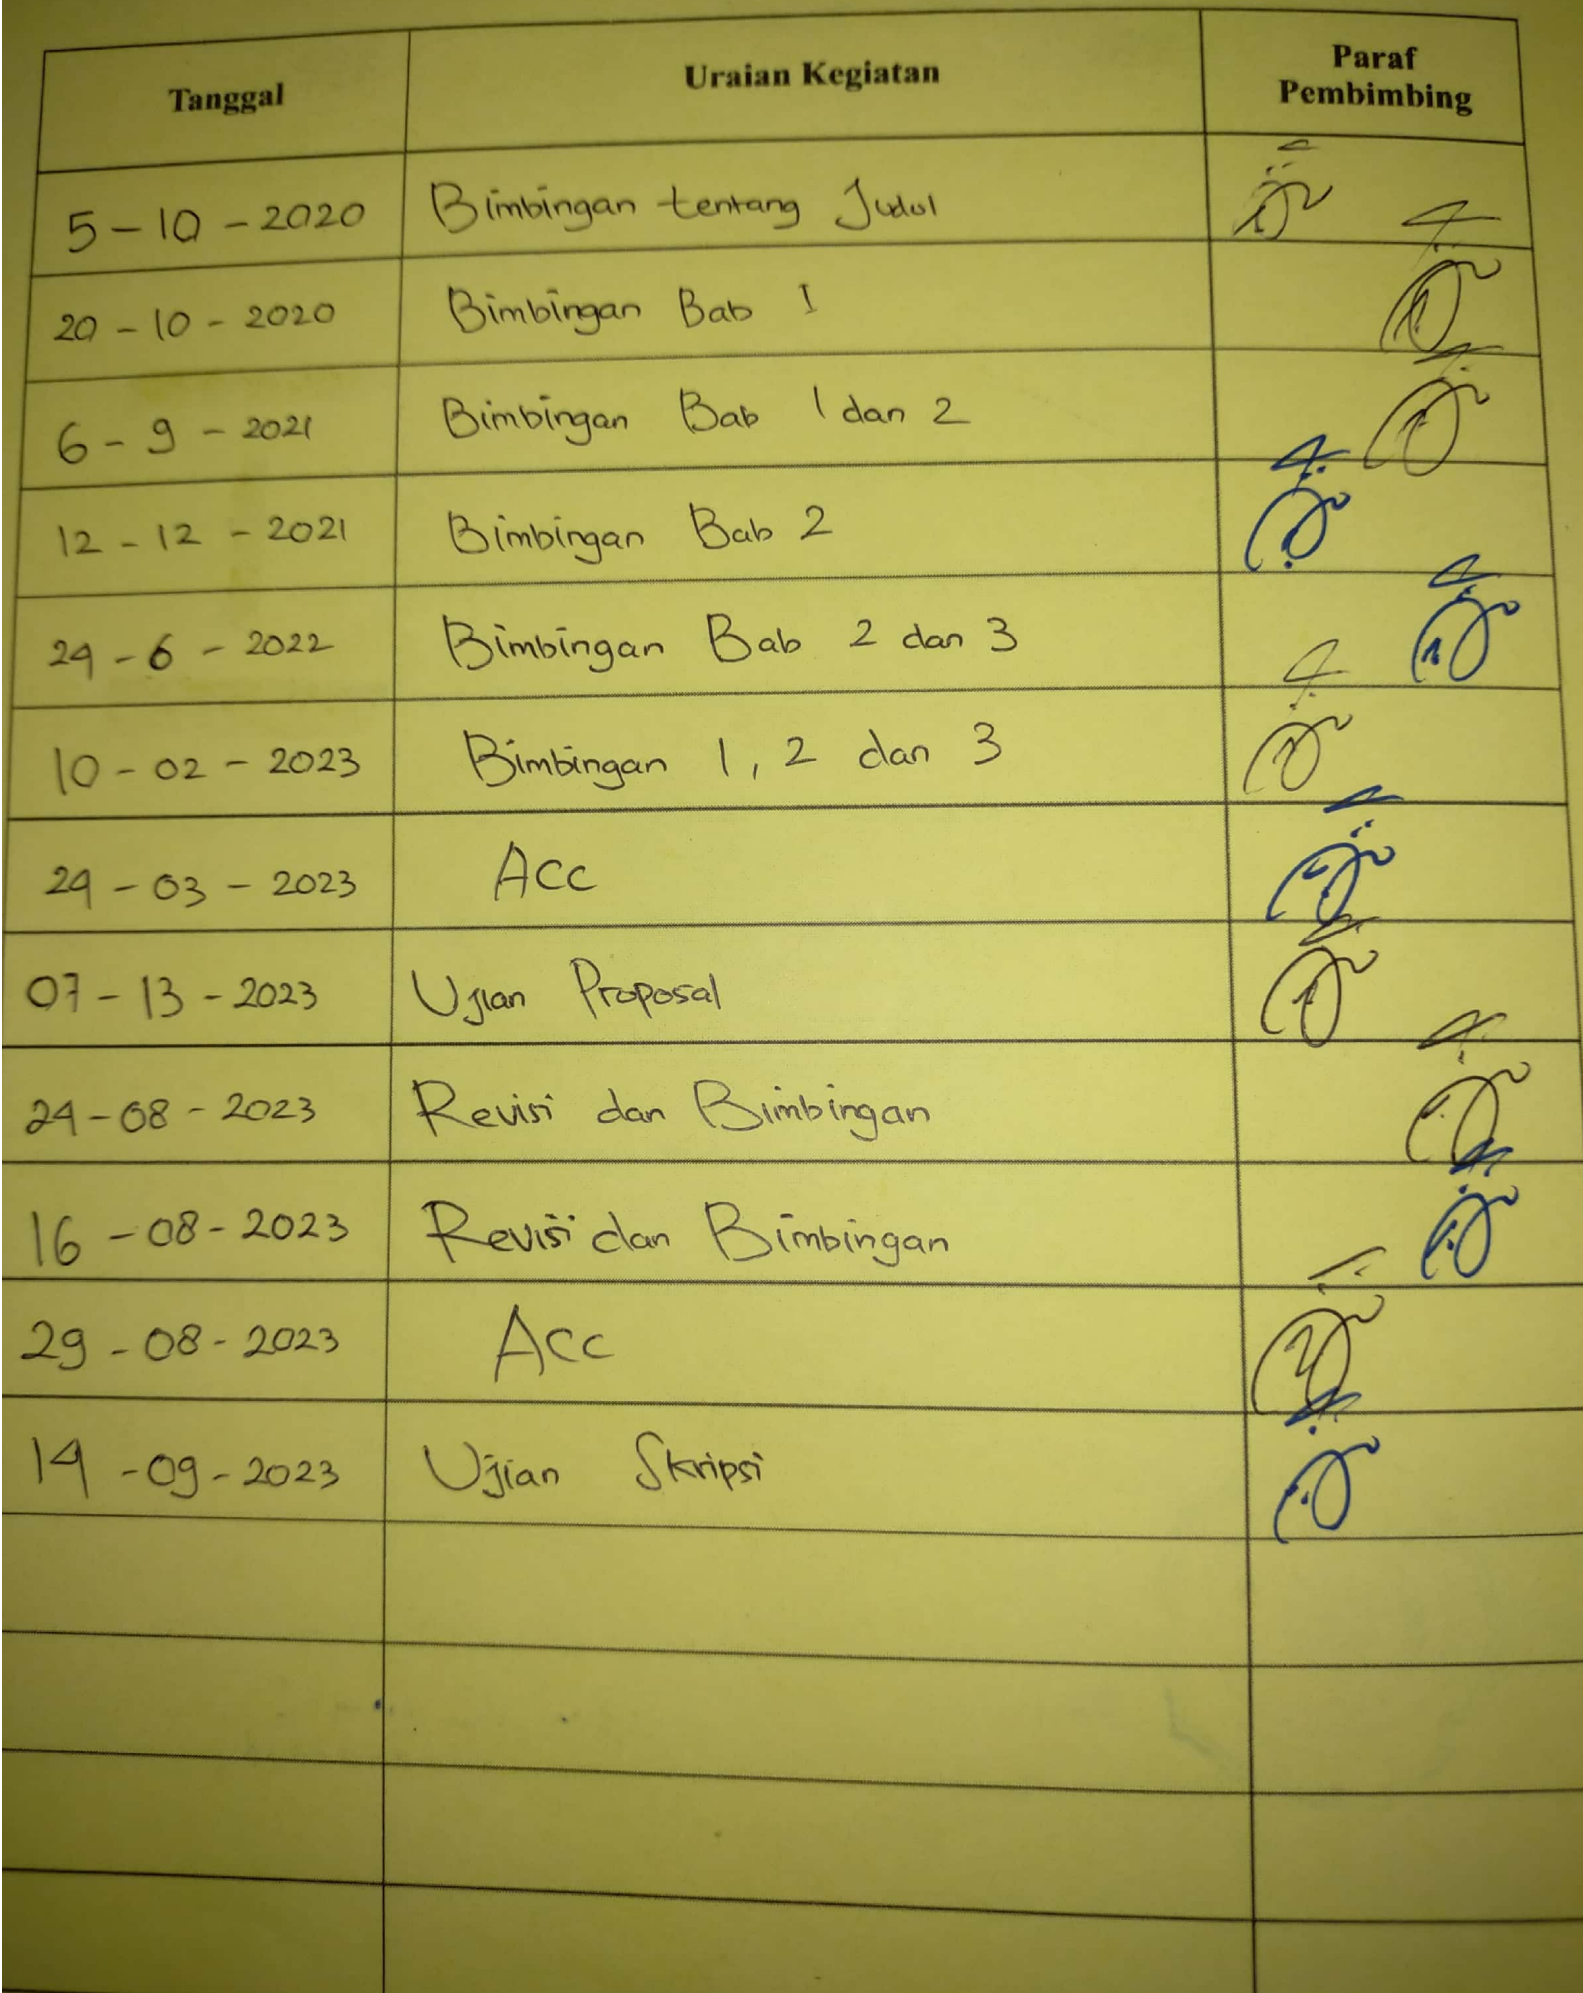 Tanggal Uraian Kegiatan Paraf Pembimbing
5-10-2020 Bimbingan tentang Judul
20-10-2020 Bimbingan Bab I
6-9-2021 Bimbingan Bab 1 dan 2
12-12-2021 Bimbingan Bab 2
24-6-2022 Bimbingan Bab 2 dan 3
10-02-2023 Bimbingan 1, 2 dan 3
24-03-2023 ACC
07-13-2023 Ujian Proposal
24-08-2023 Revisi dan Bimbingan
16-08-2023 Revisi dan Bimbingan
29-08-2023 Acc
14-09-2023 Ujian Skripsi